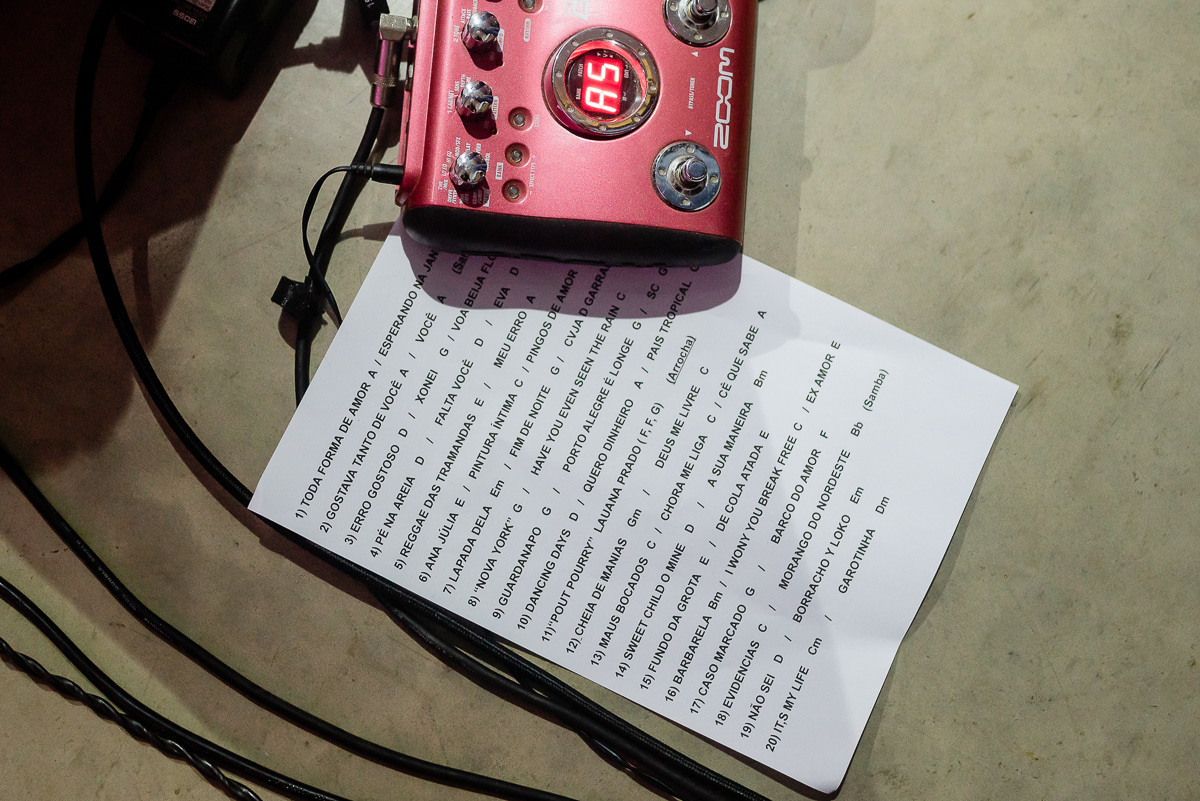 ZOOM
A5
BYPASS/TUNER
BANK
BOSS
1) TODA FORMA DE AMOR A / ESPERANDO NA JAN
2) GOSTAVA TANTO DE VOCÊ A / VOCÊ A (Sam
3) ERRO GOSTOSO D / XONEI G / VOA BEIJA FLO
4) PÉ NA AREIA D / FALTA VOCÊ D / EVA D
5) REGGAE DAS TRAMANDAS E / MEU ERRO A
6) ANA JÚLIA E / PINTURA ÍNTIMA C / PINGOS DE AMOR
7) LAPADA DELA Em / FIM DE NOITE G / CVJA D GARRA
8) "NOVA YORK" G / HAVE YOU EVEN SEEN THE RAIN C
9) GUARDANAPO G / PORTO ALEGRE É LONGE G / SC G
10) DANCING DAYS D / QUERO DINHEIRO A / PAIS TROPICAL
11)"POUT POURRY" LAUANA PRADO ( F, F, G) (Arrocha)
12) CHEIA DE MANIAS Gm / DEUS ME LIVRE C
13) MAUS BOCADOS C / CHORA ME LIGA C / CÊ QUE SABE A
14) SWEET CHILD O MINE D / A SUA MANEIRA Bm
15) FUNDO DA GROTA E / DE COLA ATADA E
16) BARBARELA Bm / I WONY YOU BREAK FREE C / EX AMOR E
17) CASO MARCADO G / BARCO DO AMOR F
18) EVIDENCIAS C / MORANGO DO NORDESTE Bb (Samba)
19) NÃO SEI D / BORRACHO Y LOKO Em
20) IT,S MY LIFE Cm / GAROTINHA Dm